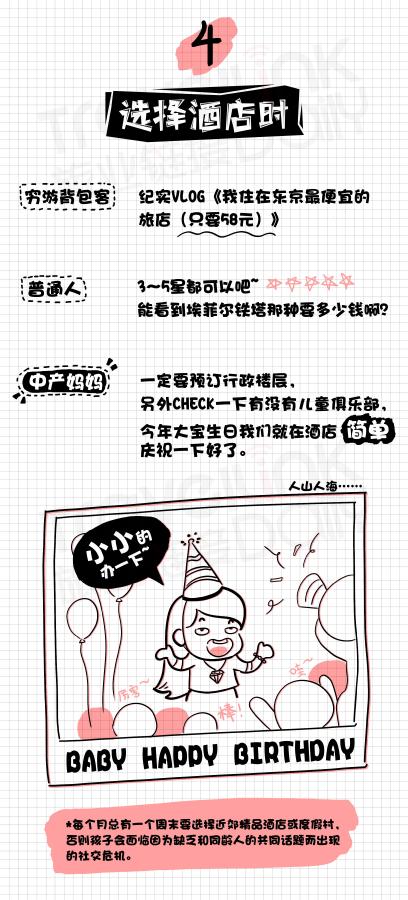 4
选择酒店时
穷游背包客
纪实VLOG《我住在东京最便宜的
旅店（只要58元）》
普通人
3～5星都可以吧~ ☆☆☆☆☆
能看到埃菲尔铁塔那种要多少钱啊?
中产妈妈
一定要预订行政楼层，
另外CHECK一下有没有儿童俱乐部，
今年大宝生日我们就在酒店 简单
庆祝一下好了。
人山人海……
小小的
办一下~
厉害~
棒!
哇~
BABY HADDY BIRTHDAY
*每个月总有一个周末要选择近郊精品酒店或度假村，
否则孩子会面临因为缺乏和同龄人的共同话题而出现
的社交危机。